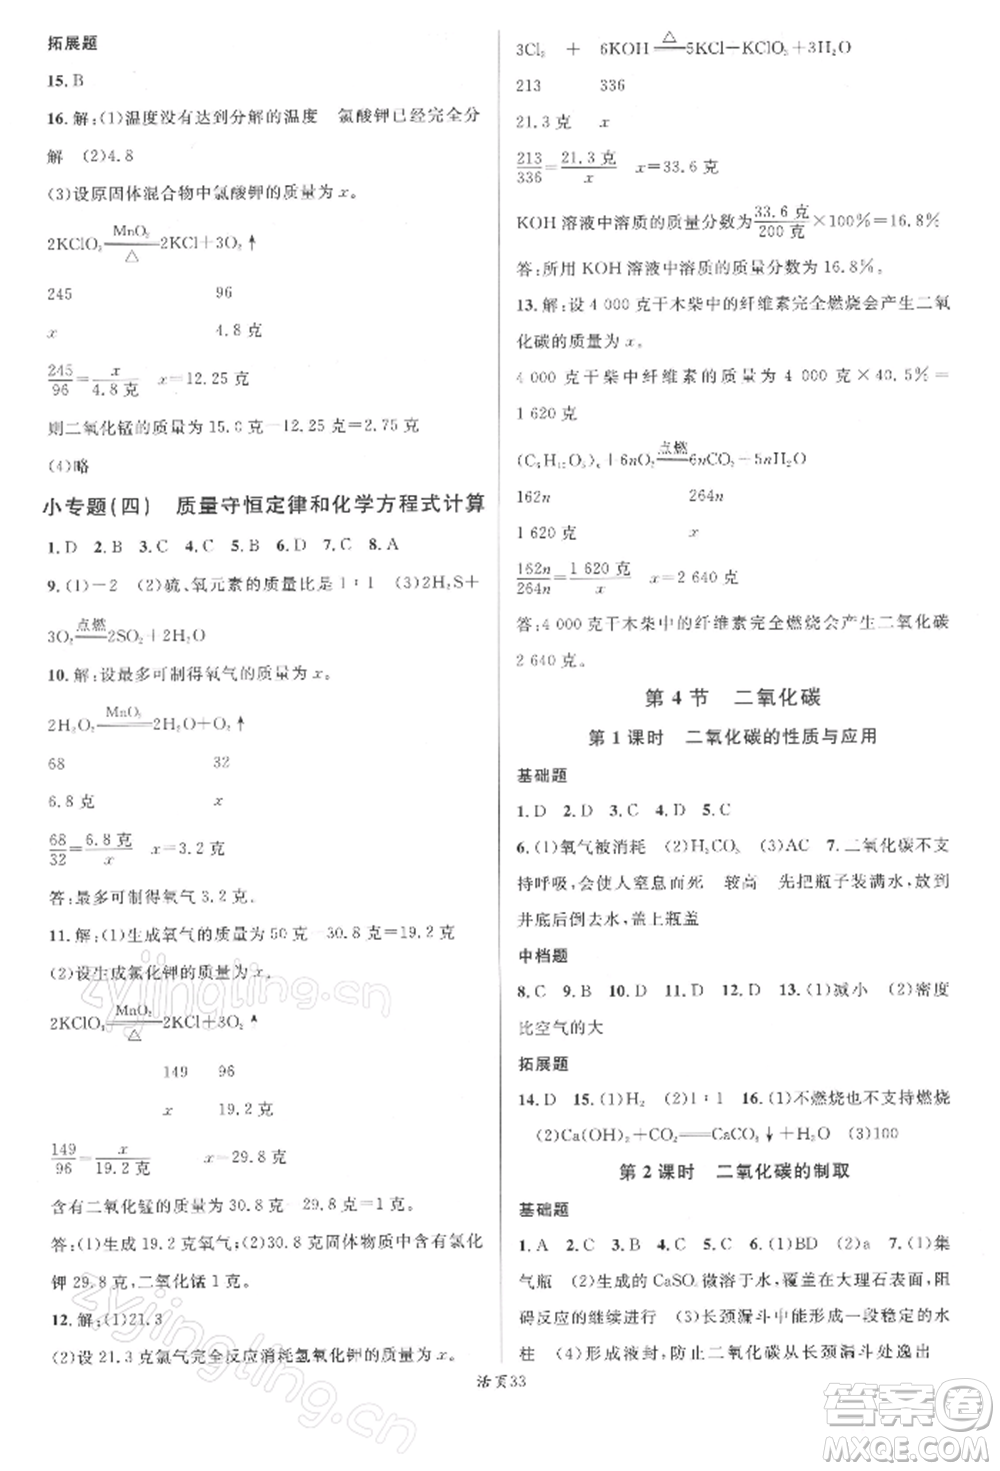 拓展题
15.B
16.解:(1)温度没有达到分解的温度　氯酸钾已经完全分
解　(2)4.8
(3)设原固体混合物中氯酸钾的质量为 x。
2KClO₃ MnO₂ △ 2KCl+3O₂↑
245　96
x　4.8 克
245/96=x/4.8 克　x=12.25 克
则二氧化锰的质量为 15.0 克-12.25 克=2.75 克
(4)略
小专题(四)　质量守恒定律和化学方程式计算
1.D　2.B　3.C　4.C　5.B　6.D　7.C　8.A
9.(1)-2　(2)硫、氧元素的质量比是 1∶1　(3)2H₂S+
3O₂ 点燃 2SO₂+2H₂O
10.解:设最多可制得氧气的质量为 x。
2H₂O₂ MnO₂ 2H₂O+O₂↑
68　32
6.8 克　x
68/32=6.8 克/x　x=3.2 克
答:最多可制得氧气 3.2 克。
11.解:(1)生成氧气的质量为 50 克-30.8 克=19.2 克
(2)设生成氯化钾的质量为 x。
2KClO₃ MnO₂ △ 2KCl+3O₂↑
149　96
x　19.2 克
149/96=x/19.2 克　x=29.8 克
含有二氧化锰的质量为 30.8 克-29.8 克=1 克
答:(1)生成 19.2 克氧气;(2)30.8 克固体物质中有氯化
钾 29.8 克,二氧化锰 1 克。
12.解:(1)21.3
(2)设 21.3 克氯气完全反应消耗氢氧化钾的质量为 x。
3Cl₂　+　6KOH △ 5KCl-KClO₃+3H₂O
213　336
21.3 克　x
213/336=21.3 克/x　x=33.6 克
KOH 溶液中溶质的质量分数为 33.6 克/200 克×100%=16.8%
答:所用 KOH 溶液中溶质的质量分数为 16.8%。
13.解:设 4 000 克干木柴中的纤维素完全燃烧会产生二氧
化碳的质量为 x。
4 000 克干柴中纤维素的质量为 4 000 克×40.5%=
1 620克
(C₆H₁₀O₅)ₙ+6nO₂ 点燃 6nCO₂+5nH₂O
162n　264n
1 620 克　x
162n/264n=1 620 克/x　x=2 640 克
答:4 000 克干木柴中的纤维素完全燃烧会产生二氧化碳
2 640 克。
第 4 节　二氧化碳
第 1 课时　二氧化碳的性质与应用
基础题
1.D　2.D　3.C　4.D　5.C
6.(1)氧气被消耗　(2)H₂CO₃　(3)AC　7.二氧化碳不支
持呼吸,会使人窒息而死　较高　先把瓶子装满水,放到
井底后倒去水,盖上瓶盖
中档题
8.C　9.B　10.D　11.D　12.D　13.(1)减小　(2)密度
比空气的大
拓展题
14.D　15.(1)H₂　(2)1∶1　16.(1)不燃烧也不支持燃烧
(2)Ca(OH)₂+CO₂══CaCO₃↓+H₂O　(3)100
第 2 课时　二氧化碳的制取
基础题
1.A　2.C　3.C　4.C　5.C　6.(1)BD　(2)a　7.(1)集
气瓶　(2)生成的 CaSO₄ 微溶于水,覆盖在大理石表面,阻
碍反应的继续进行　(3)长颈漏斗中能形成一段稳定的水
柱　(4)形成液封,防止二氧化碳从长颈漏斗处逸出
活页33
zyjingling.cn
zyjingling.cn
答案圈
MXQE.COM